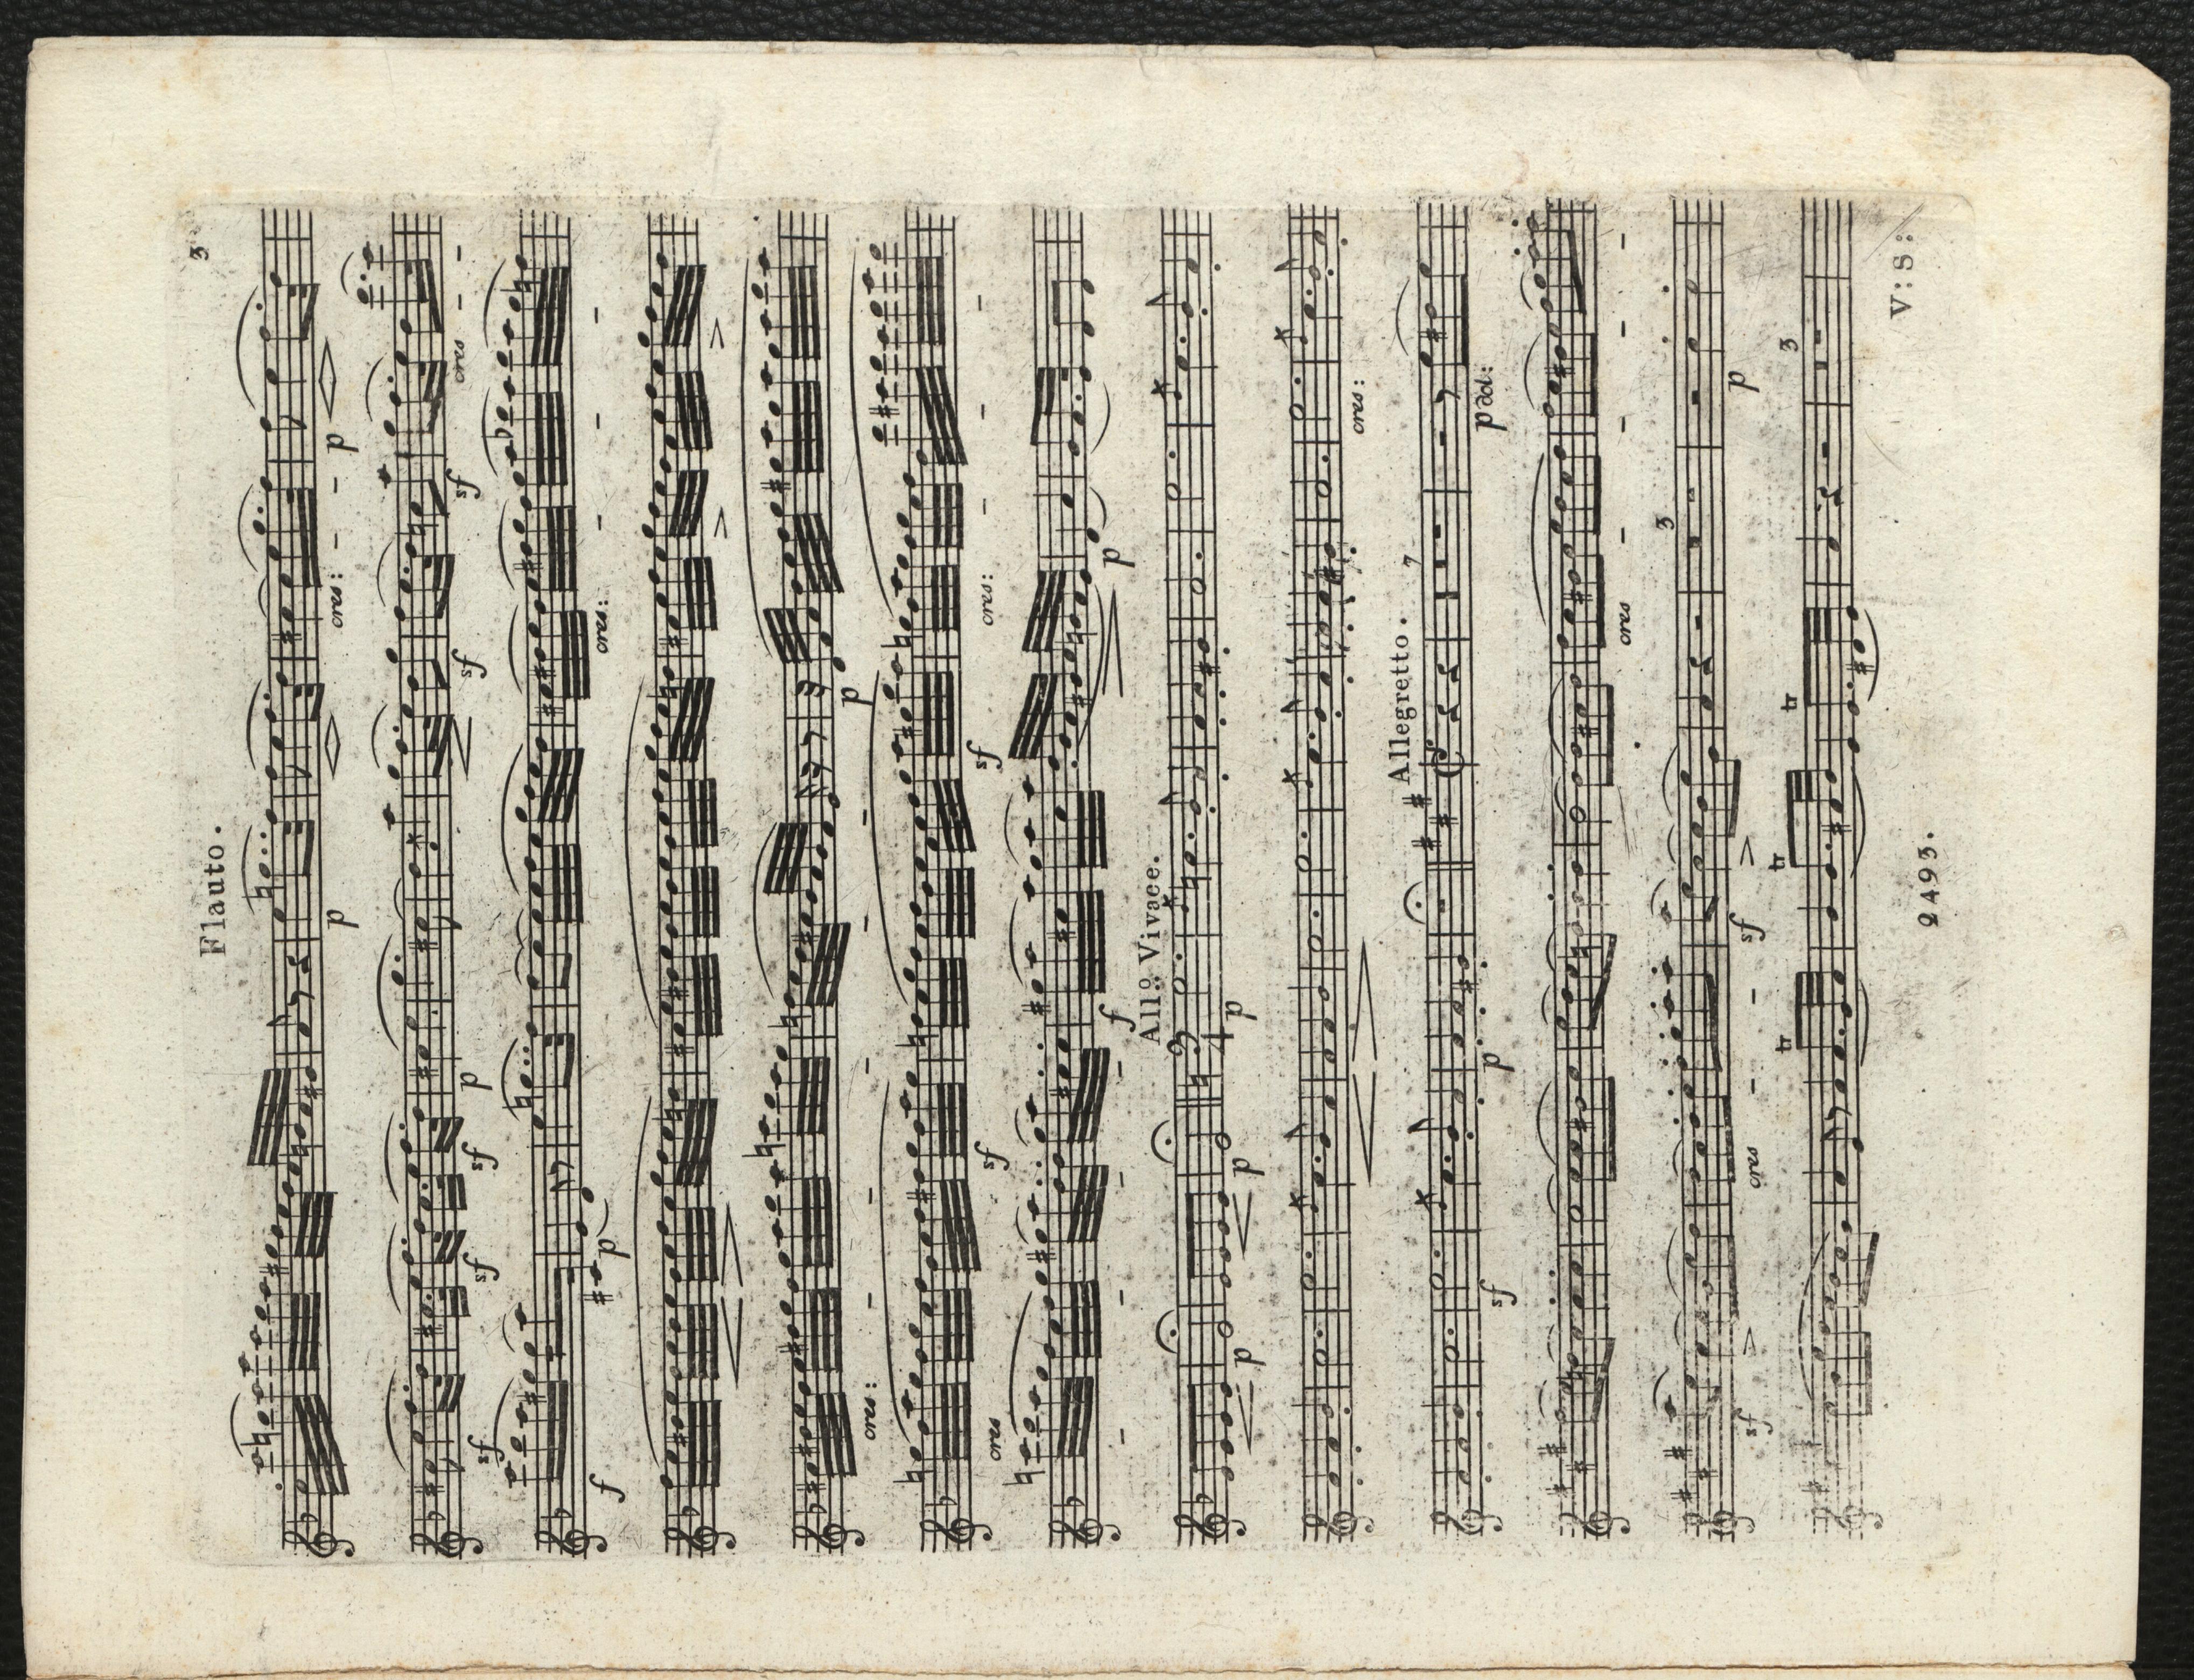 Flauto. 3
p cres: - - p
sf sf p sf sf cres - -
f p cres: - -
cres: - - - - p
cres sf - - sf cres: - -
- - - f p
p p Allº Vivace. 9 4 p
cres:
sf p Allegretto. 7 p dol:
cres - - - -
sf cres - - sf 3 p
tr tr tr 3
2493. V:S: